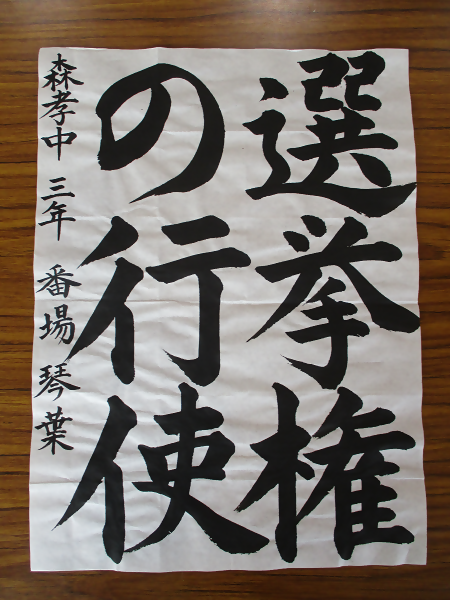 選挙権
の行使
森孝中 三年 番場琴葉